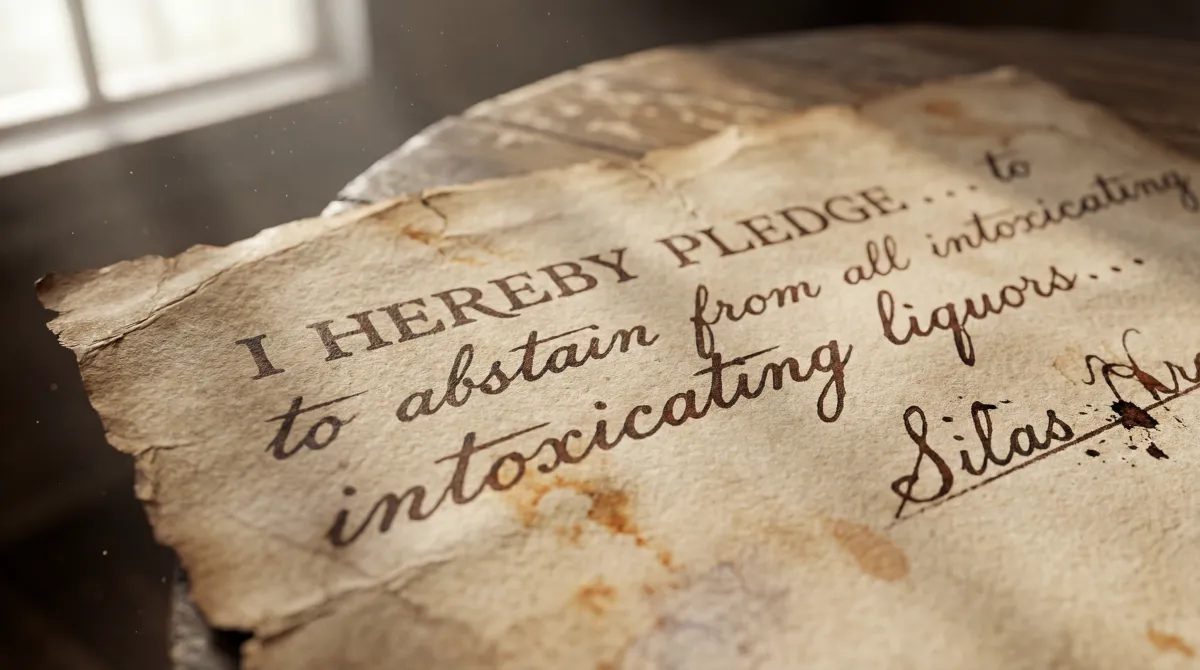 I HEREBY PLEDGE... to
to abstain from all intoxicating
intoxicating liquors...
Silas